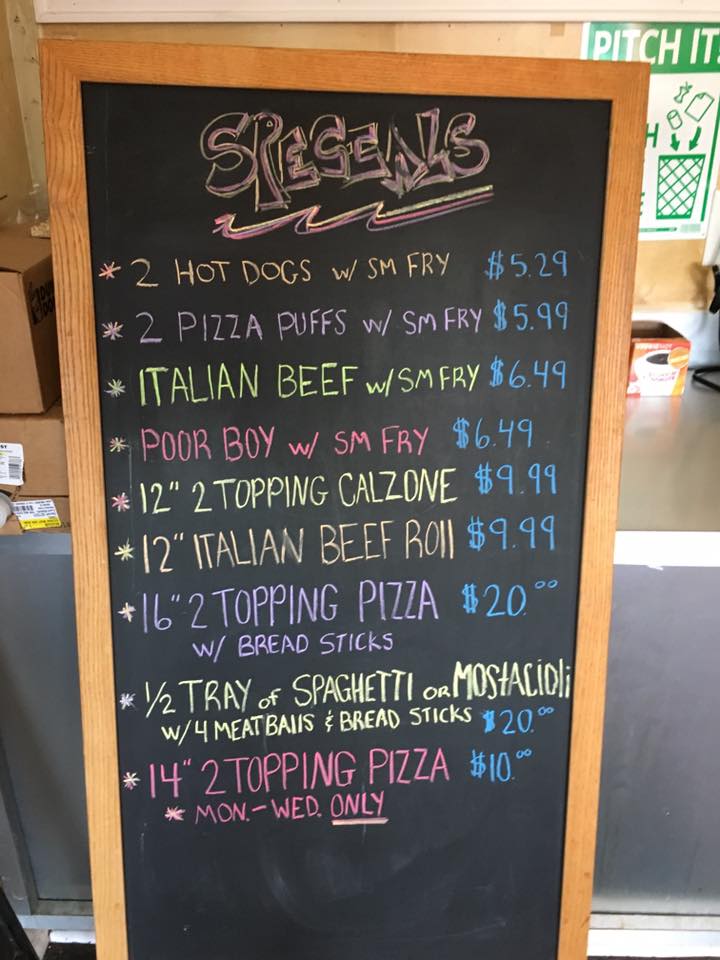 PITCH IT!
SPECIALS
* 2 HOT DOGS w/ SM FRY $5.29
* 2 PIZZA PUFFS w/ SM FRY $5.99
* ITALIAN BEEF w/ SM FRY $6.49
* POOR BOY w/ SM FRY $6.49
* 12" 2 TOPPING CALZONE $9.99
* 12" ITALIAN BEEF ROll $9.99
* 16" 2 TOPPING PIZZA $20.00
w/ BREAD STICKS
* 1/2 TRAY of SPAGHETTI OR MOSTACIOLI
w/ 4 MEATBAllS & BREAD STICKS $20.00
* 14" 2 TOPPING PIZZA $10.00
* MON.-WED. ONLY